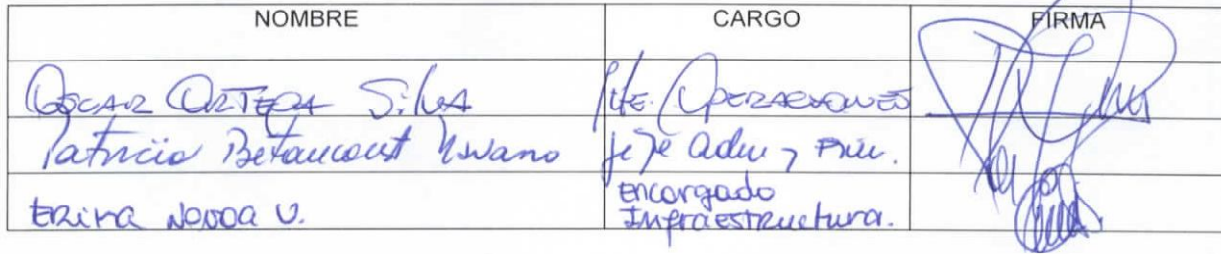 NOMBRE CARGO FIRMA
OSCAR ORTEGA Silva Jefe. OPERACIONES
Patricio Betancourt jefe adm y Fin.
ERIKA NOVOA V. encargado
Infraestructura.